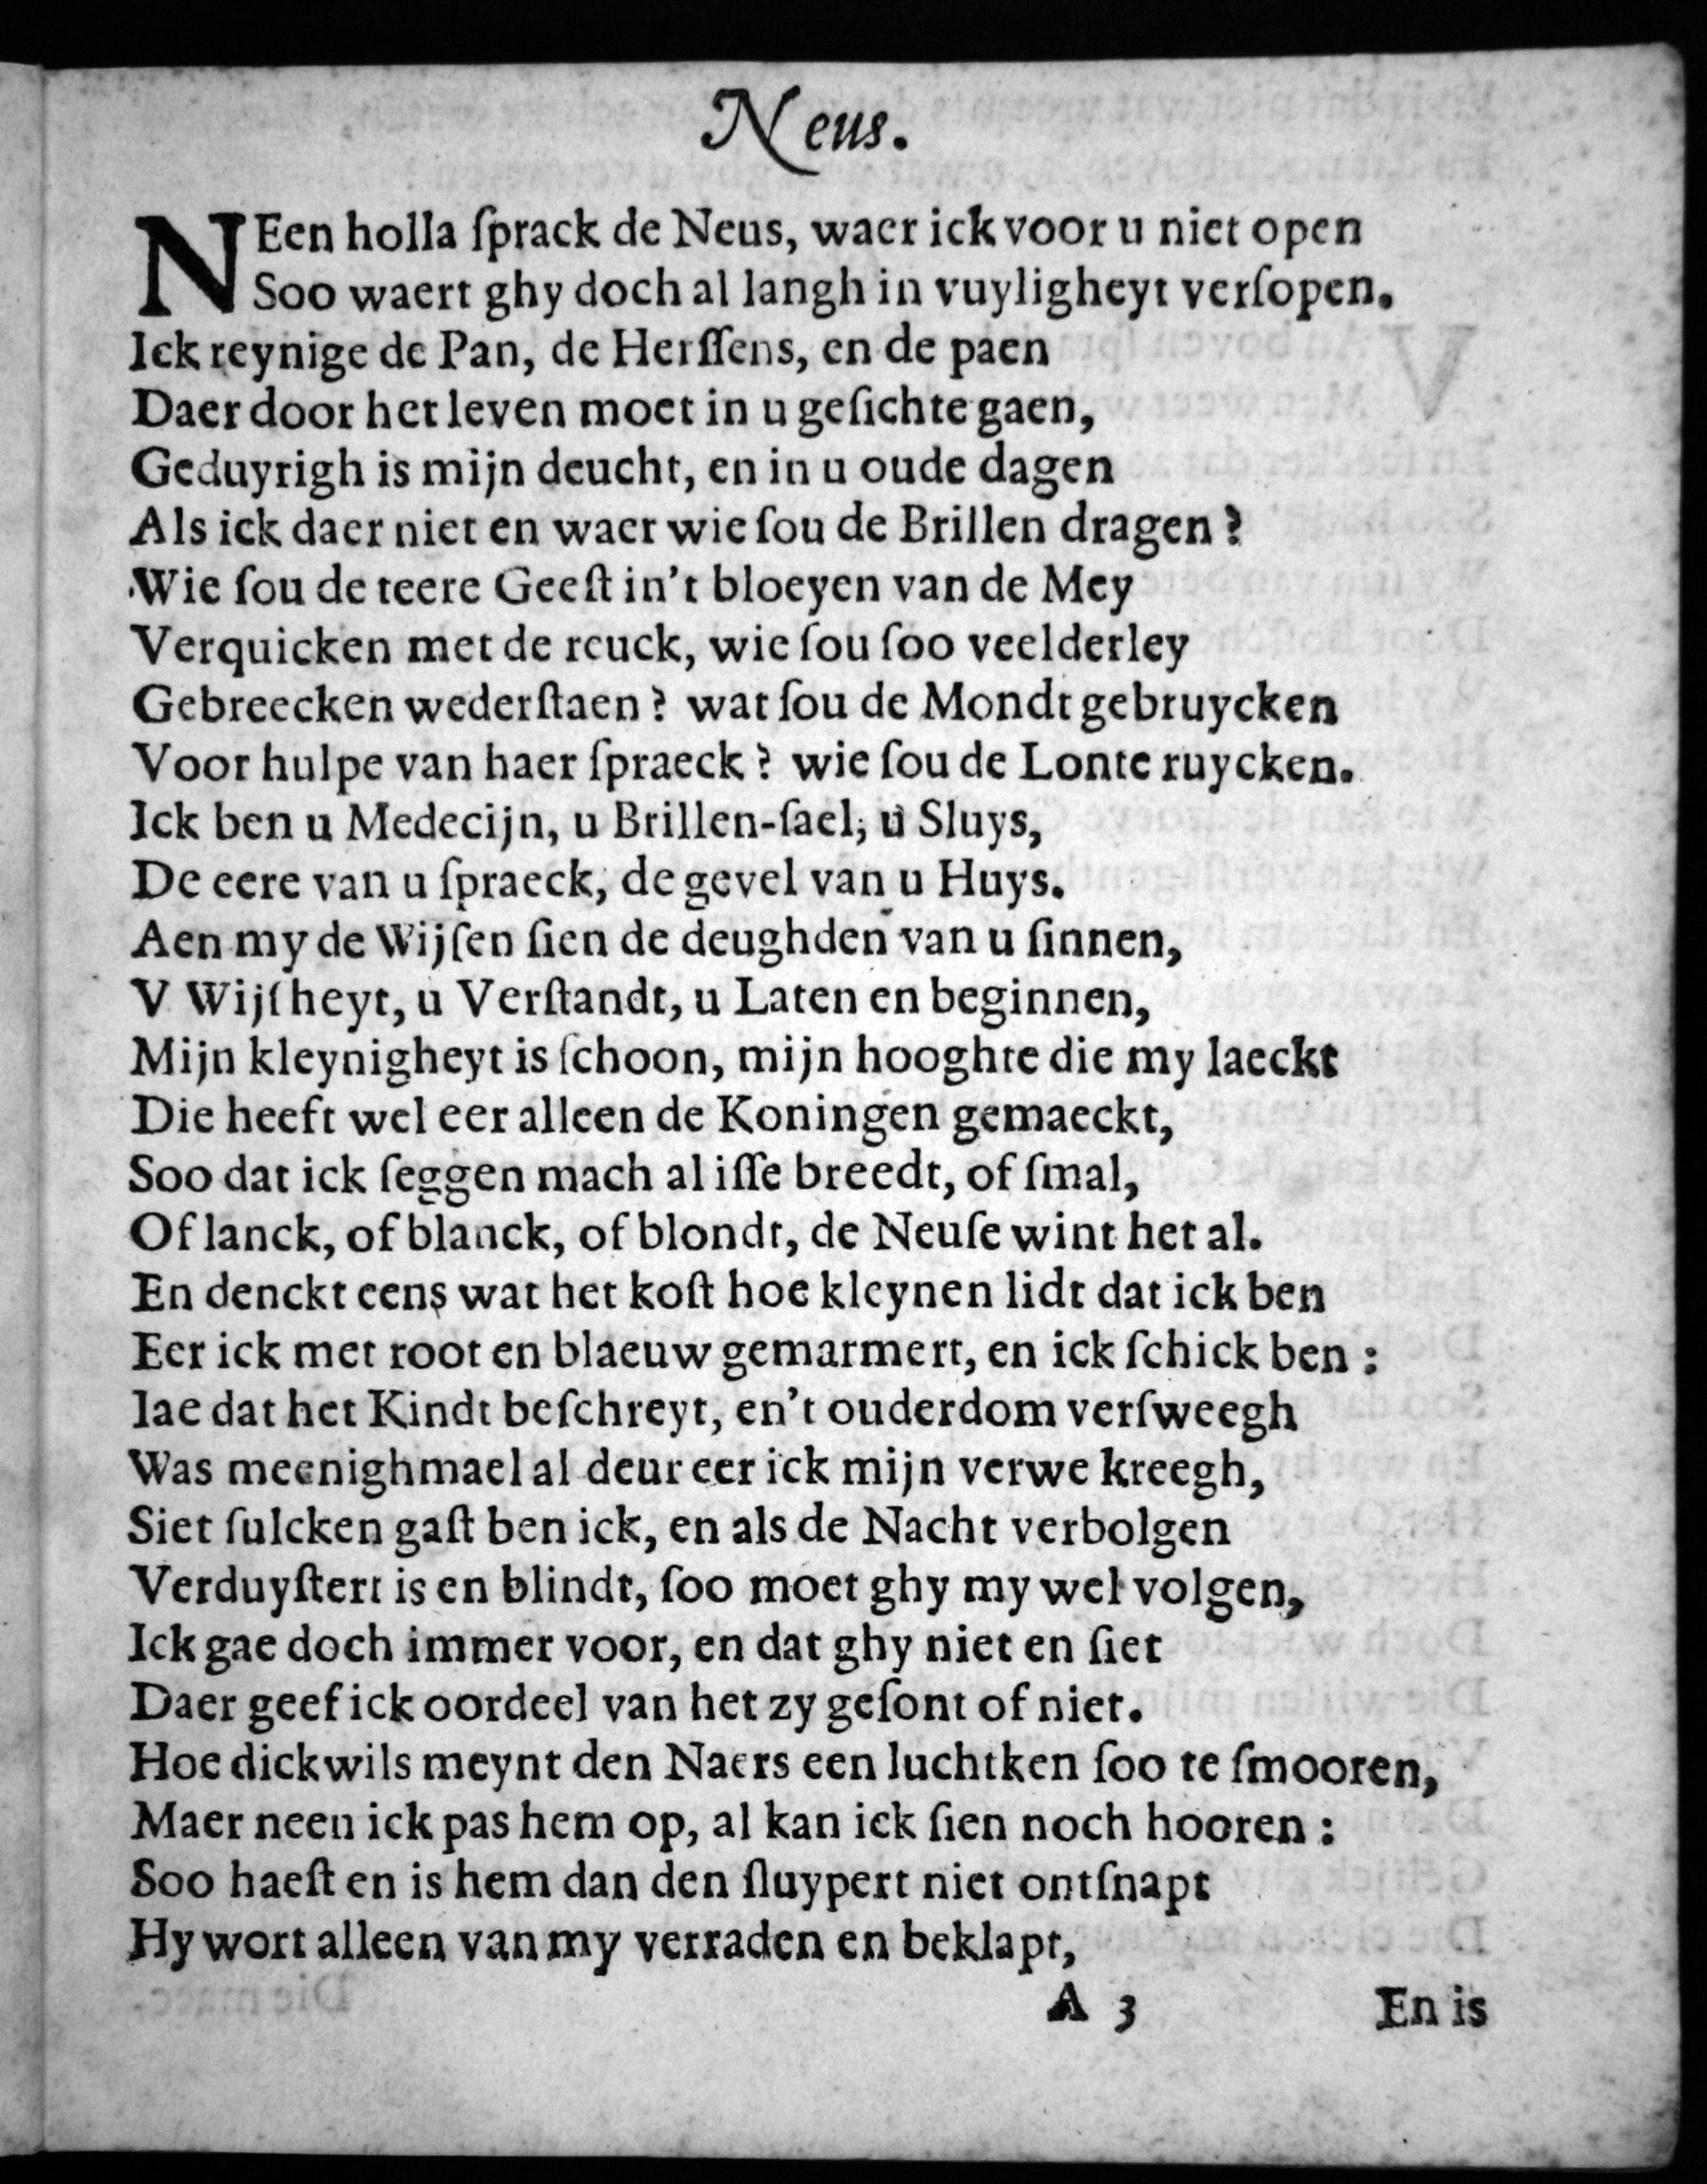 Neus.
NEen holla ſprack de Neus, waer ick voor u niet open
Soo waert ghy doch al langh in vuyligheyt verſopen.
Ick reynige de Pan, de Herſſens, en de paen
Daer door het leven moet in u geſichte gaen,
Geduyrigh is mijn deucht, en in u oude dagen
Als ick daer niet en waer wie ſou de Brillen dragen?
Wie ſou de teere Geeſt in't bloeyen van de Mey
Verquicken met de reuck, wie ſou ſoo veelderley
Gebreecken wederſtaen? wat ſou de Mondt gebruycken
Voor hulpe van haer ſpraeck? wie ſou de Lonte ruycken.
Ick ben u Medecijn, u Brillen-ſael, u Sluys,
De eere van u ſpraeck, de gevel van u Huys.
Aen my de Wijſen ſien de deughden van u ſinnen,
V Wijſheyt, u Verſtandt, u Laten en beginnen,
Mijn kleynigheyt is ſchoon, mijn hooghte die my laeckt
Die heeft wel eer alleen de Koningen gemaeckt,
Soo dat ick ſeggen mach al iſſe breedt, of ſmal,
Of lanck, of blanck, of blondt, de Neuſe wint het al.
En denckt eens wat het koſt hoe kleynen lidt dat ick ben
Eer ick met root en blaeuw gemarmert, en ick ſchick ben:
Iae dat het Kindt beſchreyt, en't ouderdom verſweegh
Was meenighmael al deur eer ick mijn verwe kreegh,
Siet ſulcken gaſt ben ick, en als de Nacht verbolgen
Verduyſtert is en blindt, ſoo moet ghy my wel volgen,
Ick gae doch immer voor, en dat ghy niet en ſiet
Daer geef ick oordeel van het zy geſont of niet.
Hoe dickwils meynt den Naers een luchtken ſoo te ſmooren,
Maer neen ick pas hem op, al kan ick ſien noch hooren:
Soo haeſt en is hem dan den ſluypert niet ontſnapt
Hy wort alleen van my verraden en beklapt,
A 3 En is